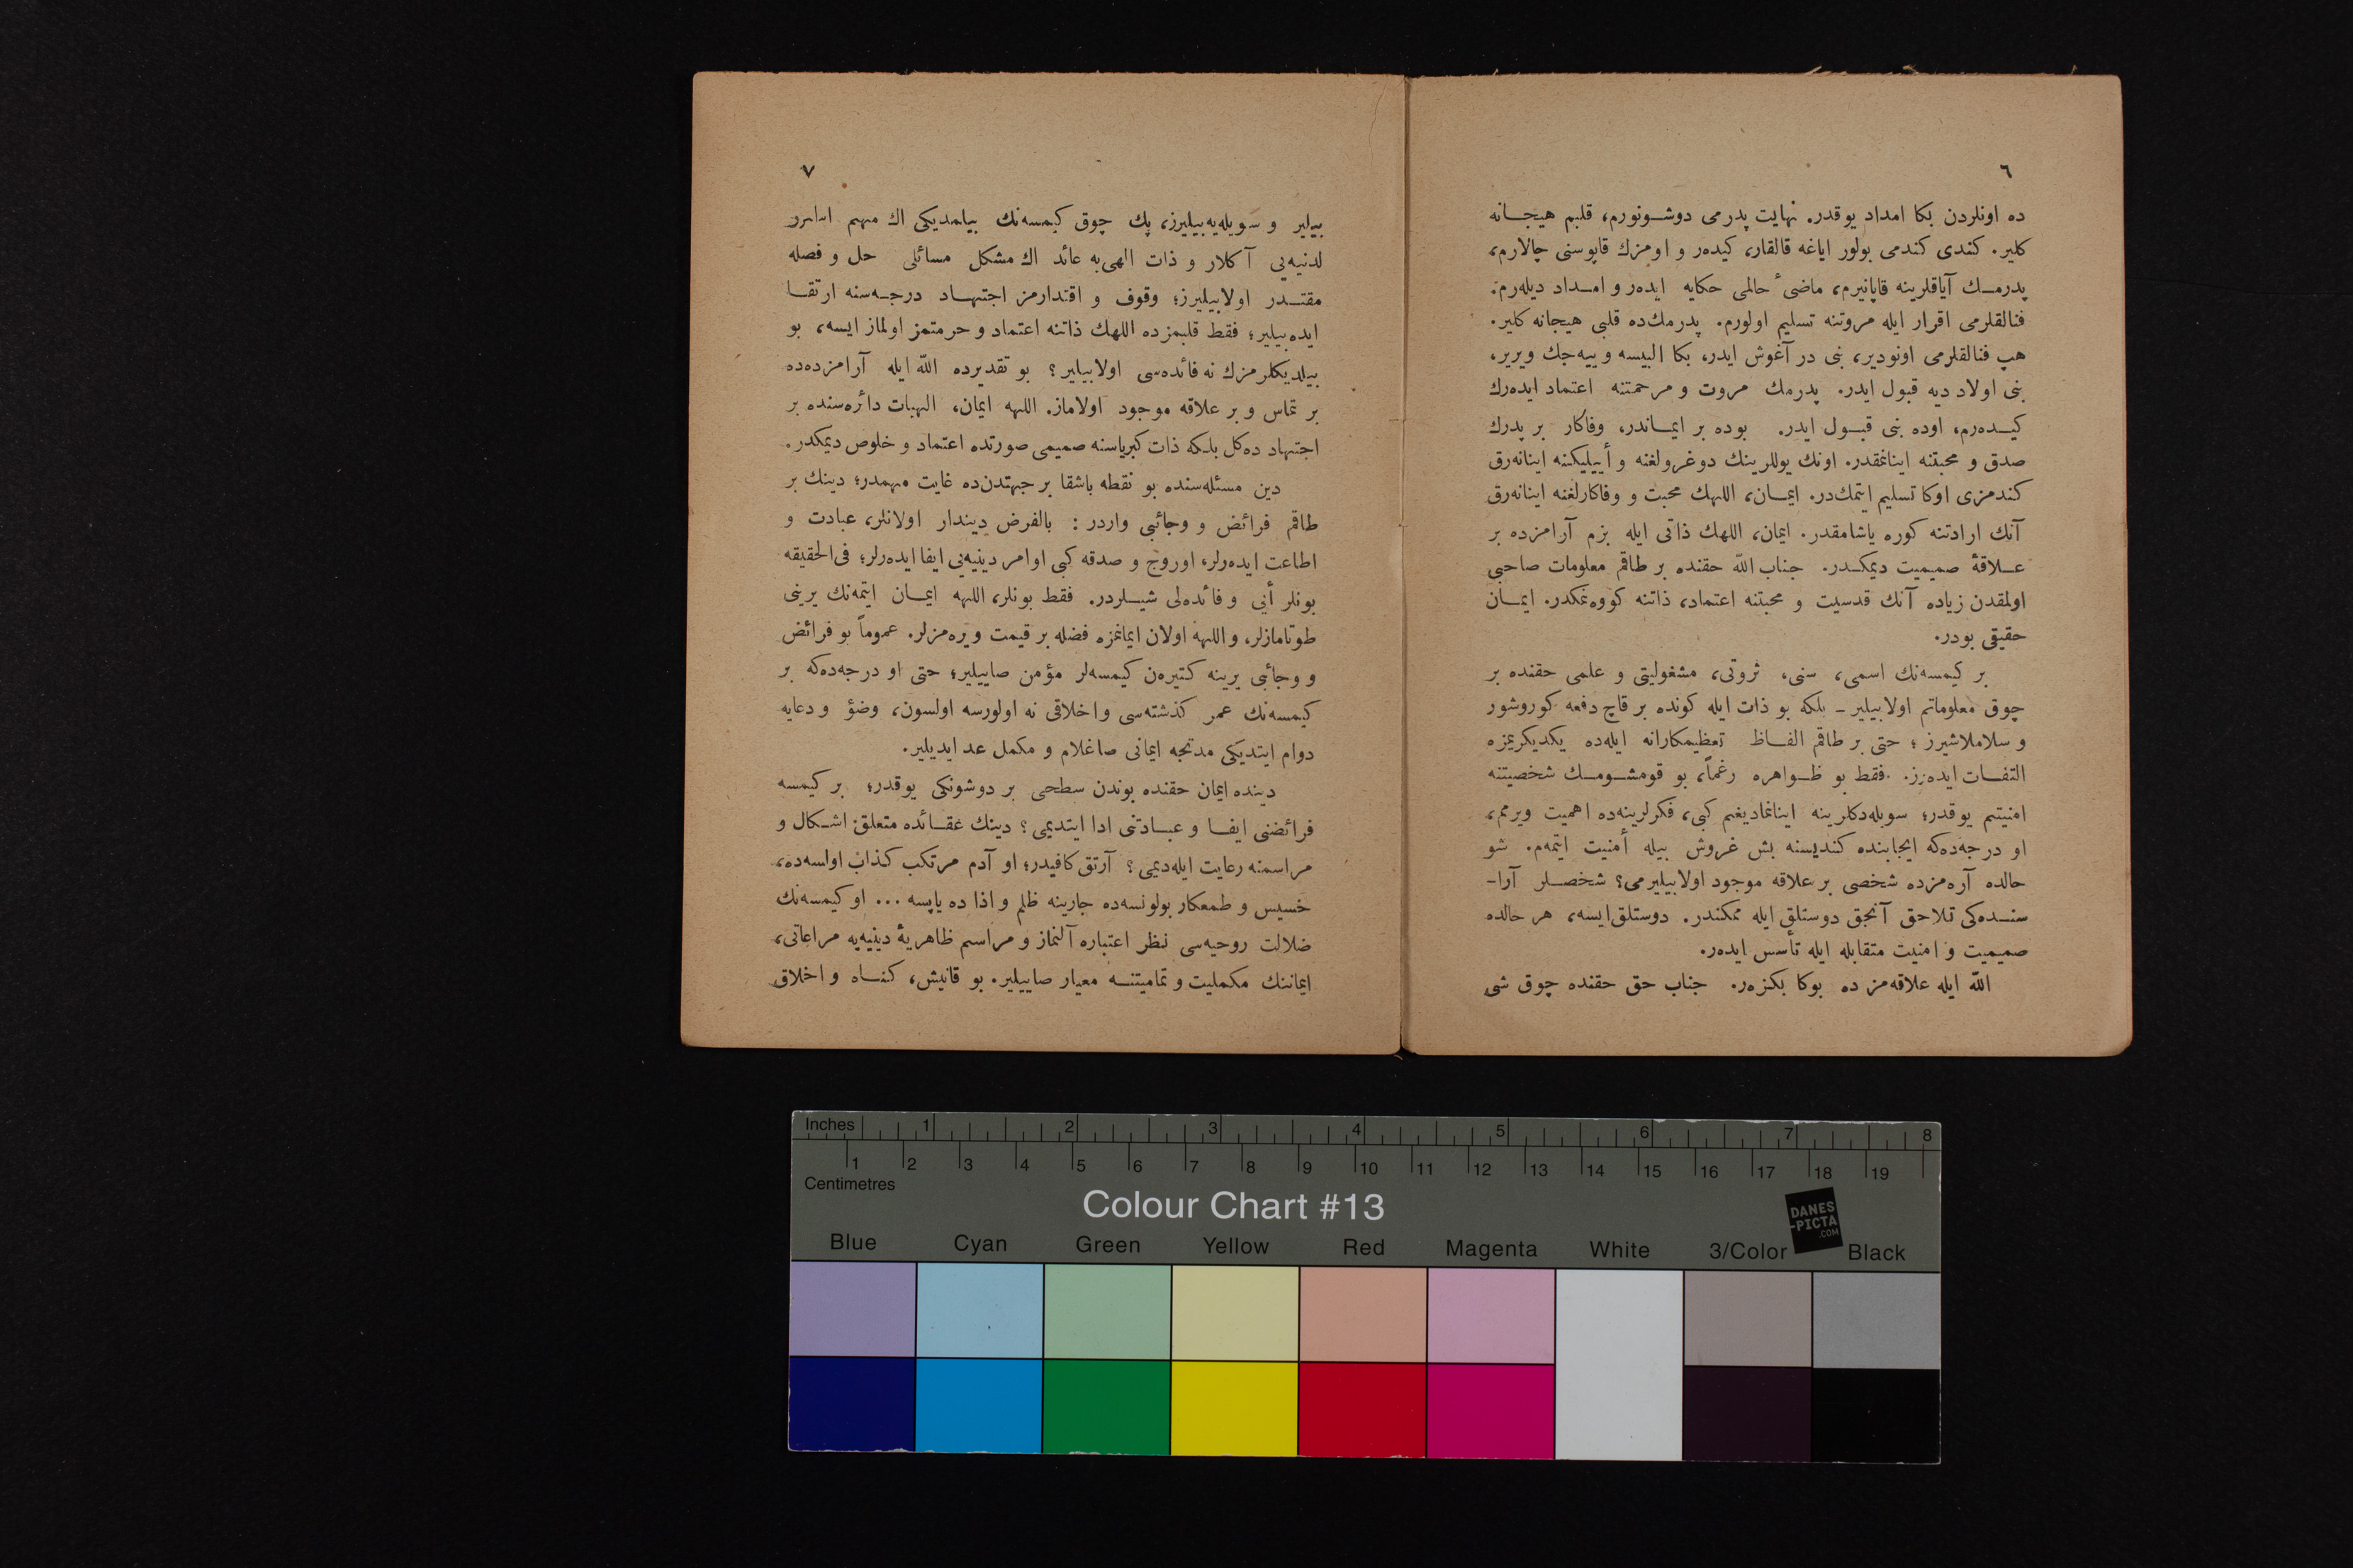 ٦
ده اونلردن بكا امداد يوقدر. نهايت پدرمى دوشـونورم، قلبم هيجـانه
كلير. كندى كندمى بولور اياغه قالقار، كيده‌ر و اومزك قاپوسنى چالارم،
پدرمـك آياقلرينه قاپانيرم، ماضئ حالمى حكايه ايده‌ر و امـداد ديله‌رم.
فنالقلرمى اقرار ايله مروتنه تسليم اولورم. پدرمك‌ده قلبى هيجانه كلير.
هپ فنالقلرمى اونودير، بنى در آغوش ايدر، بكا البيسه و ييه‌جك ويرير،
بنى اولاد ديه قبول ايدر. پدرمك مروت و مرحمتنه اعتماد ايده‌رك
كيـده‌رم، اوده بنى قبـول ايدر. بوده بر ايمـاندر، وفاكار بر پدرك
صدق و محبتنه اينانمقدر. اونك يوللرينك دوغرولغنه و أييليكنه اينانه‌رق
كندمزى اوكا تسليم ايتمك‌در. ايمـان، اللهك محبت و وفاكارلغنه اينانه‌رق
آنك ارادتنه كوره ياشامقدر. ايمان، اللهك ذاتى ايله بزم آرامزده بر
عـلاقهٔ صميميت ديمكـدر. جناب الله حقنده بر طاقم معلومات صاحبى
اولمقدن زياده آنك قدسيت و محبتنه اعتماد، ذاتنه كووه‌نمكدر. ايمـان
حقيقى بودر.
بر كيمسه‌نك اسمى، سنى، ثروتى، مشغوليتى و علمى حقنده بر
چوق معلوماتم اولابيلير ـ بلكه بو ذات ايله كونده بر قاچ دفعه كوروشور
و سلاملاشيرز ؛ حتى بر طاقم الفـاظ تعظيمكارانه ايله‌ده يكديكريمزه
التفـات ايده‌رز. فقط بو ظـواهره رغماً، بو قومشـومـك شخصيتنه
امنيتم يوقدر؛ سويله‌دكلرينه اينانماديغم كبى، فكرلرينه‌ده اهميت ويرمم،
او درجه‌ده‌كه ايجابنده كنديسنه بش غروش بيله أمنيت ايتمه‌م. شو
حالده آره‌مزده شخصى بر علاقه موجود اولابيليرمى؟ شخصـلر آرا-
سنـده‌كى تلاحق آنجق دوستلق ايله ممكندر. دوستلق‌ايسه، هر حالده
صميميت و امنيت متقابله ايله تأسس ايده‌ر.
الله ايله علاقه‌مز ده بوكا بكزه‌ر. جناب حق حقنده چوق شى
٧
بيلير و سويله‌يه‌بيليرز، پك چوق كيمسه‌نك بيلمديكى اك مهم
لدنيه‌يى آكلار و ذات الهى‌يه عائد اك مشكل مسائلى حل و فصله
مقتـدر اولابيليرز؛ وقوف و اقتدارمز اجتهـاد درجـه‌سنه ارتقـا
ايده‌بيلير؛ فقط قلبمزده اللهك ذاتنه اعتماد و حرمتمز اولماز ايسه، بو
بيلديكلرمزك نه فائده‌سى اولابيلير؟ بو تقديرده الله ايله آرامزده‌ده
بر تماس و بر علاقه موجود اولاماز. اللهه ايمان، الهيات دائره‌سنده بر
اجتهاد ده‌كل بلكه ذات كبرياسنه صميمى صورتده اعتماد و خلوص ديمكدر.
دين مسئله‌سنده بو نقطه باشقا بر جهتدن‌ده غايت مهمدر؛ دينك بر
طاقم فرائض و وجائبى واردر : بالفرض ديندار اولانلر، عبادت و
اطاعت ايده‌رلر، اوروج و صدقه كبى اوامر دينيه‌يى ايفا ايده‌رلر؛ فى‌الحقيقه
بونلر أيى و فائده‌لى شيـلردر. فقط بونلر، اللهه ايمـان ايتمه‌نك يرينى
طوتامازلر، و اللهه اولان ايمانمزه فضله بر قيمت ويره‌مزلر. عموماً بو فرائض
و وجائبى يرينه كتيره‌ن كيمسه‌لر مؤمن صاييلير؛ حتى او درجه‌ده‌كه بر
كيمسه‌نك عمر كذشته‌سى و اخلاقى نه اولورسه اولسون، وضؤ و دعايه
دوام ايتديكى مدتجه ايمانى صاغلام و مكمل عد ايديلير.
دينده ايمان حقنده بوندن سطحى بر دوشونكى يوقدر؛ بر كيمسه
فرائضنى ايفـا و عبـادتنى ادا ايتديمى؟ دينك عقـائده متعلق اشـكال و
مراسمنه رعايت ايله‌ديمى؟ آرتق كافيدر؛ او آدم مرتكب كذاب اولسه‌ده،
خسيس و طمعكار بولونسه‌ده جارينه ظلم و اذا ده ياپسه ... او كيمسه‌نك
ضلالت روحيه‌سى نظر اعتباره آلنماز و مراسم ظاهريهٔ دينيه‌يه مراعاتى،
ايماننك مكمليت و تماميتنـه معيار صاييلير. بو قانيش، كنـاه و اخلاق
Inches 1 2 3 4 5 6 7 8
1 2 3 4 5 6 7 8 9 10 11 12 13 14 15 16 17 18 19
Centimetres
Colour Chart #13
DANES
-PICTA
.COM
Blue Cyan Green Yellow Red Magenta White 3/Color Black